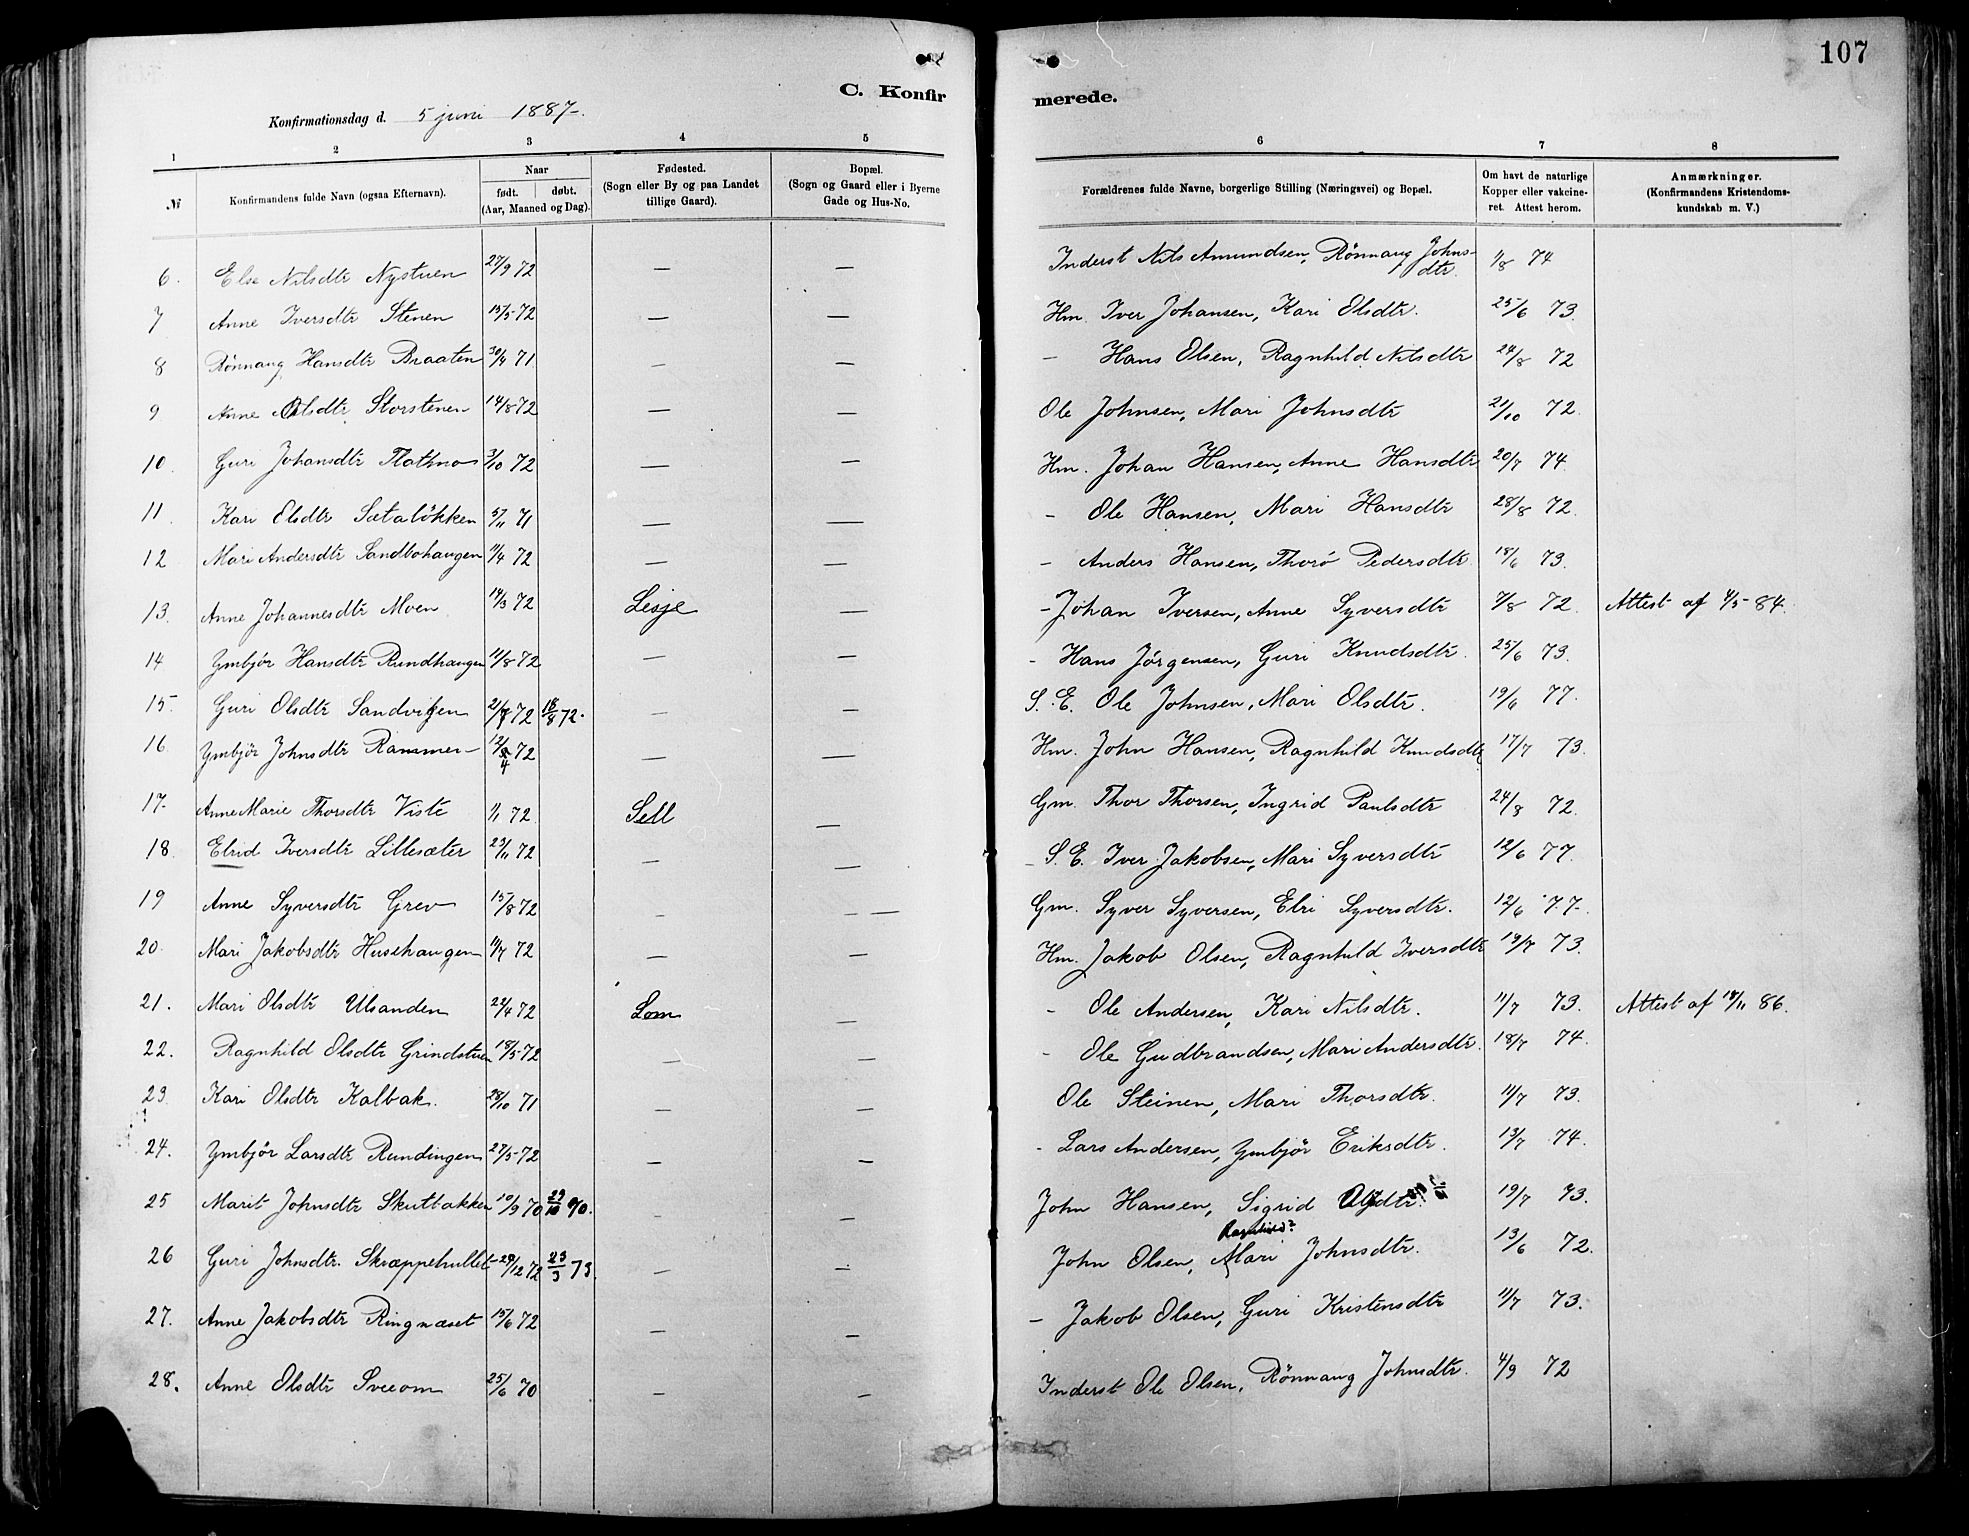 107
C. Konfirmerede.
Konfirmationsdag d. 5 juni 1887.
1 2 3 4 5 6 7 8
№
Konfirmandens fulde Navn (ogsaa Efternavn).
Naar
født. døbt.
(Aar, Maaned og Dag).
Fødested.
(Sogn eller By og paa Landet
tillige Gaard).
Bopæl.
(Sogn og Gaard eller i Byerne
Gade og Hus-No.
Forældrenes fulde Navne, borgerlige Stilling (Næringsvei) og Bopæl.
Om havt de naturlige
Kopper eller vakcine-
ret. Attest herom.
Anmærkninger.
(Konfirmandens Kristendoms-
kundskab m. V.)
6. Else Nilsdtr Nystuen 27/9 72 — — Inderst Nils Amundsen, Rönnaug Johns-dtr. 1/8 74
7 Anne Iversdtr Stenen 15/5 72 — — Hm. Iver Johansen, Kari Olsdtr. 25/6 73.
8 Rönnaug Hansdtr Braaten 30/4 71 — — – Hans Olsen, Ragnhild Nilsdtr 24/8 72
9 Anne Olsdtr Storstenen 14/8 72 — — Ole Johnsen, Mari Johnsdtr 21/10 72.
10. Guri Johansdtr Flatmo 3/10 72 — — Hm. Johan Hansen, Anne Hansdtr 20/7 74.
11. Kari Olsdtr Sætalökken 5/11 71 — — – Ole Hansen, Mari Hansdtr 28/8 72.
12 Mari Andersdtr Sandbohaugen 11/4 72 — — – Anders Hansen, Thorö Pedersdtr. 18/6 73.
13. Anne Johannesdtr Moen 14/3 72 Lesje — – Johan Iversen, Anne Syversdtr 7/8 72. Attest af 4/5 84.
14 Ymbjör Hansdtr Rundhaugen 11/8 72 — — – Hans Jörgensen, Guri Knudsdtr. 25/6 73.
15 Guri Olsdtr Sandviken 21/7 72 18/8 72. — — S. E. Ole Johnsen, Mari Olsdtr. 19/6 77.
16 Ymbjör Johnsdtr Rammen 12/4 72 — — Hm. John Hansen, Ragnhild Knudsdtr 17/7 73.
17. Anne Marie Thorsdtr Viste 1/1 72 Sell — Gm. Thor Thorsen, Ingrid Paulsdtr 24/8 72.
18. Elrid Iversdtr Lillesæter 23/11 72 — — – S. E. Iver Jakobsen, Mari Syversdtr 12/6 77.
19 Anne Syversdtr Grev 15/8 72 — — Gm. Syver Syversen, Elri Syversdtr. 12/6 77.
20. Mari Jakobsdtr Husehaugen 11/7 72 — — Hm. Jakob Olsen, Ragnhild Iversdtr 19/7 73.
21. Mari Olsdtr Ulsanden 24/4 72 Lom — – Ole Andersen, Kari Nilsdtr. 11/7 73. Attest af 18/11 86.
22. Ragnhild Olsdtr Grindstuen 18/5 72 — — – Ole Gudbrandsen, Mari Andersdtr. 18/7 74.
23. Kari Olsdtr Kalbak. 28/10 71 — — Ole Steinen, Mari Thorsdtr. 11/7 73.
24. Ymbjör Larsdtr Rundingen 27/5 72 — — – Lars Andersen, Ymbjör Eriksdtr. 13/7 74.
25 Marit Johnsdtr Skutbakken 10/9 70 23/10 70. — — John Hansen, Sigrid 19/7 73.
Ragnhild?
26 Guri Johnsdtr. Skræppehullet 29/12 72 23/3 73. — — John Olsen, Mari Johnsdtr. 13/6 72.
27. Anne Jakobsdtr Ringnæset 15/6 72 — — – Jakob Olsen, Guri Kristensdtr 11/7 73.
28. Anne Olsdtr Sveeom 25/6 70 — — Inderst Ole Olsen, Rönnaug Johnsdtr. 4/9 72